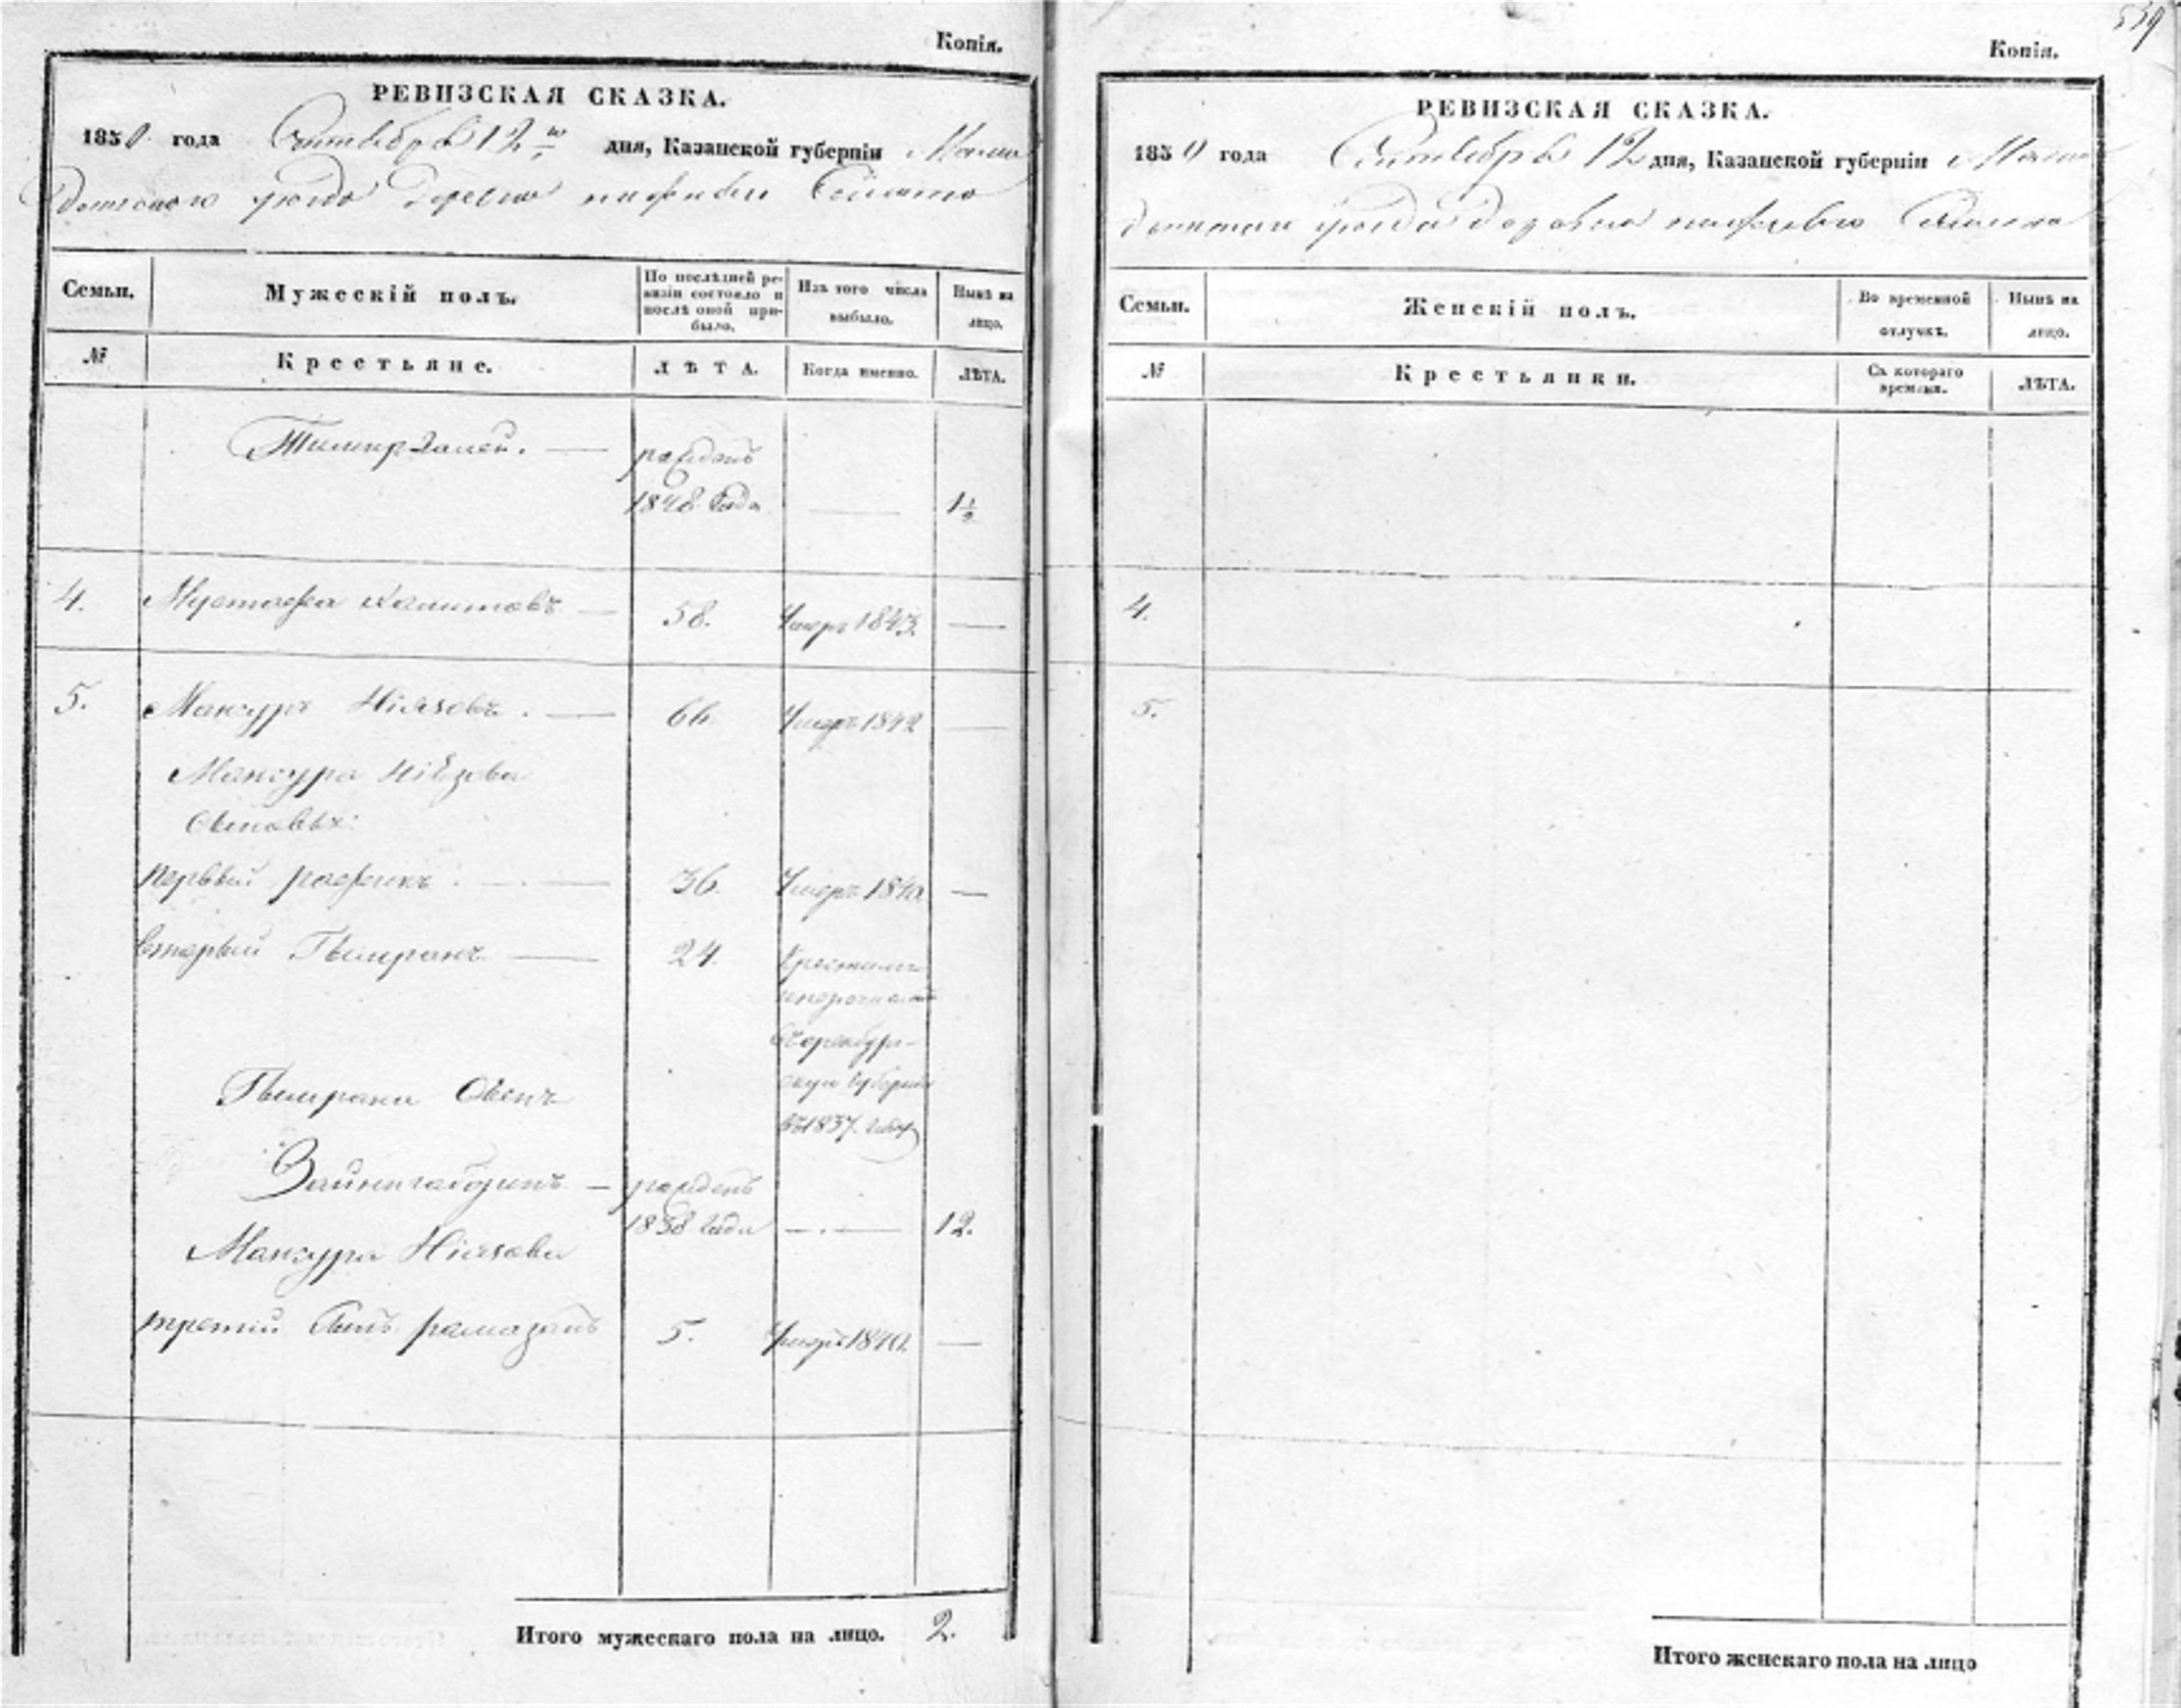 Копія.
РЕВИЗСКАЯ СКАЗКА.
1850 года Сентября 12го дня, Казанской губерніи Мама
дышскаго уезда Деревни
Семьи.
Мужескій полъ.
По послѣдней ре-
визіи состояло и
послѣ оной при-
было.
Изъ того числа
выбыло.
Нынѣ на
лицо.
№
Крестьяне.
ЛѢТА.
Когда именно.
ЛѢТА.
рожденъ
1848 года — 1½
4. Мустафа Хамитовъ — 58. Умеръ 1843. —
5. Мансуръ Ніязовъ. — 66 Умеръ 1842 —
Мансура Ніязова
Сыновья:
первый рафикъ. — 36. Умеръ 1840. —
вторый — 24.
въ оренбург-
ской губерніи
въ 1837. году
Сынъ
— рожденъ
1838 года — 12.
Мансура Ніязова
третій Сынъ рамазанъ 5. Умеръ 1840. —
Итого мужескаго пола на лицо. 2.
539
Копія.
РЕВИЗСКАЯ СКАЗКА.
1850 года Сентября 12 дня, Казанской губерніи Мама
дышскаго уезда деревни
Семьи.
Женскій полъ.
Во временной
отлучкѣ.
Нынѣ на
лицо.
№
Крестьянки.
Съ котораго
времени.
ЛѢТА.
4.
5.
Итого женскаго пола на лицо